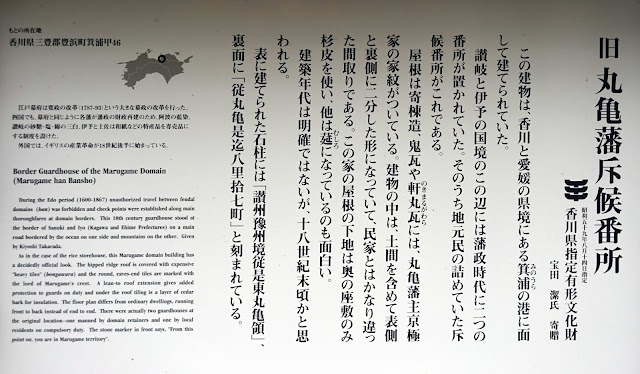 旧丸亀藩斥候番所
昭和五十九年八月十四日指定
香川県指定有形文化財
宝田 潔氏 寄贈
みのうら
この建物は、香川と愛媛の県境にある箕浦の港に面
して建てられていた。
讃岐と伊予の国境のこの辺には藩政時代に二つの
番所が置かれていた。そのうち地元民の詰めていた斥
候番所がこれである。
のきまるがわら
屋根は寄棟造、鬼瓦や軒丸瓦には、丸亀藩主京極
家の家紋がついている。建物の中は、土間を含めて表側
と裏側に二分した形になっていて、民家とはかなり違っ
た間取りである。この家の屋根の下地は奥の座敷のみ
むしろ
杉皮を使い、他は莚になっているのも面白い。
建築年代は明確ではないが、十八世紀末頃かと思
われる。
表に建てられた石柱には「讃州豫州境従是東丸亀領」、
裏面に「従丸亀是迄八里拾七町」と刻まれている。
もとの所在地
香川県三豊郡豊浜町箕浦甲46
江戸幕府は寛政の改革(1787-93)という大きな幕政の改革を行った。
四国でも、幕府と同じように各藩が藩政の財政再建のため、阿波の藍染、
讃岐の砂糖・塩・綿の三白、伊予と土佐は和紙などの特産品を専売品に
する制度を設けた。
外国では、イギリスの産業革命が18世紀後半に始まっている。
Border Guardhouse of the Marugame Domain
(Marugame han Bansho)
During the Edo period (1600-1867) unauthorized travel between feudal
domains (han) was forbidden and check points were established along main
thoroughfares at domain borders. This 18th century guardhouse stood at
the border of Sanuki and Iyo (Kagawa and Ehime Prefectures) on a main
road bordered by the ocean on one side and mountains on the other. Given
by Kiyoshi Takarada.
As in the case of the rice storehouse, this Marugame domain building has
a decidedly official look. The hipped ridge roof is covered with expensive
"heavy tiles" (hongawara) and the round, eaves-end tiles are marked with
the lord of Marugame's crest. A lean-to roof extension gives added
protection to guards on duty and under the roof tiling is a layer of cedar
bark for insulation. The floor plan differs from ordinary dwellings, running
front to back instead of end to end. There were actually two guardhouses at
the original location—one manned by domain retainers and one by local
residents on compulsory duty. The stone marker in front says, "From this
point on, you are in Marugame territory".